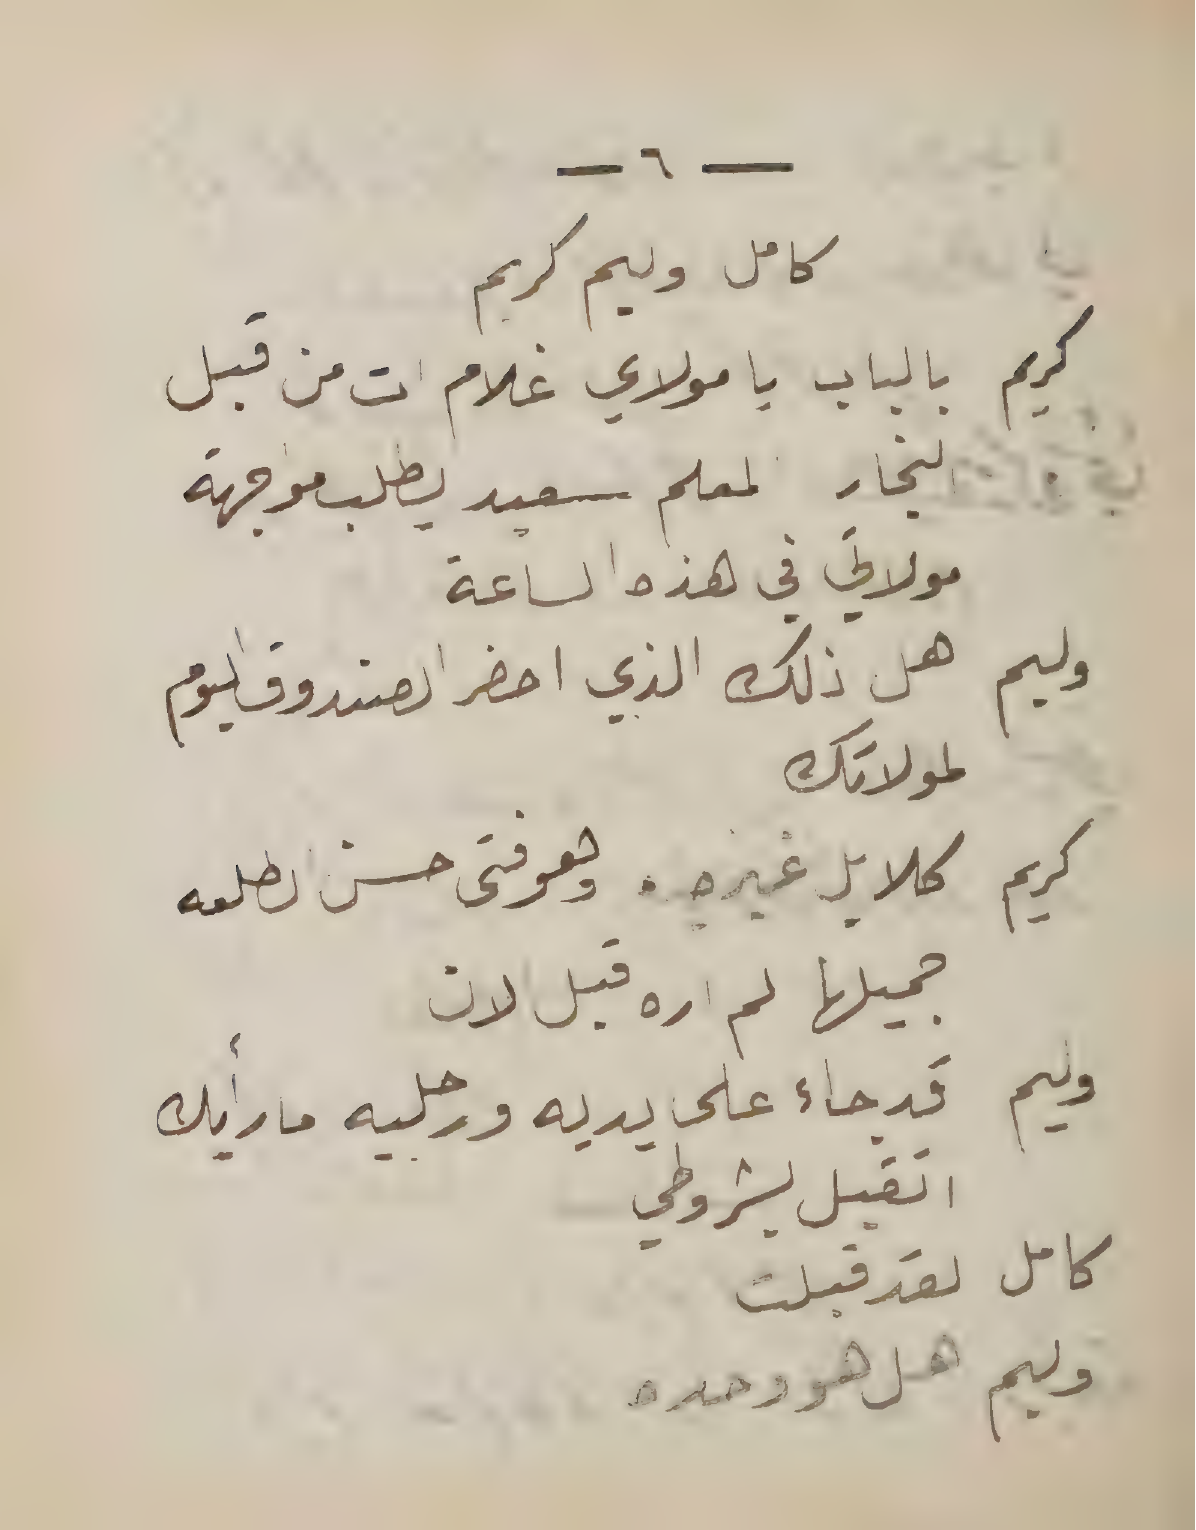 — ٦ —
كامل وليم كريم
كريم بالباب يا مولاي غلام ات من قبل
النجار المعلم سعيد يطلب مواجهة
مولاتي في هذه الساعة
وليم هل ذلك الذي احضر الصندوق اليوم
لمولاتك
كريم كلا بل غيره وهو فتى حسن الطلعه
جميلها لم اره قبل الان
وليم قد جاء على يديه ورجليه ما رأيك
اتقبل بشروطي
كامل لقد قبلت
وليم هل هو وحده